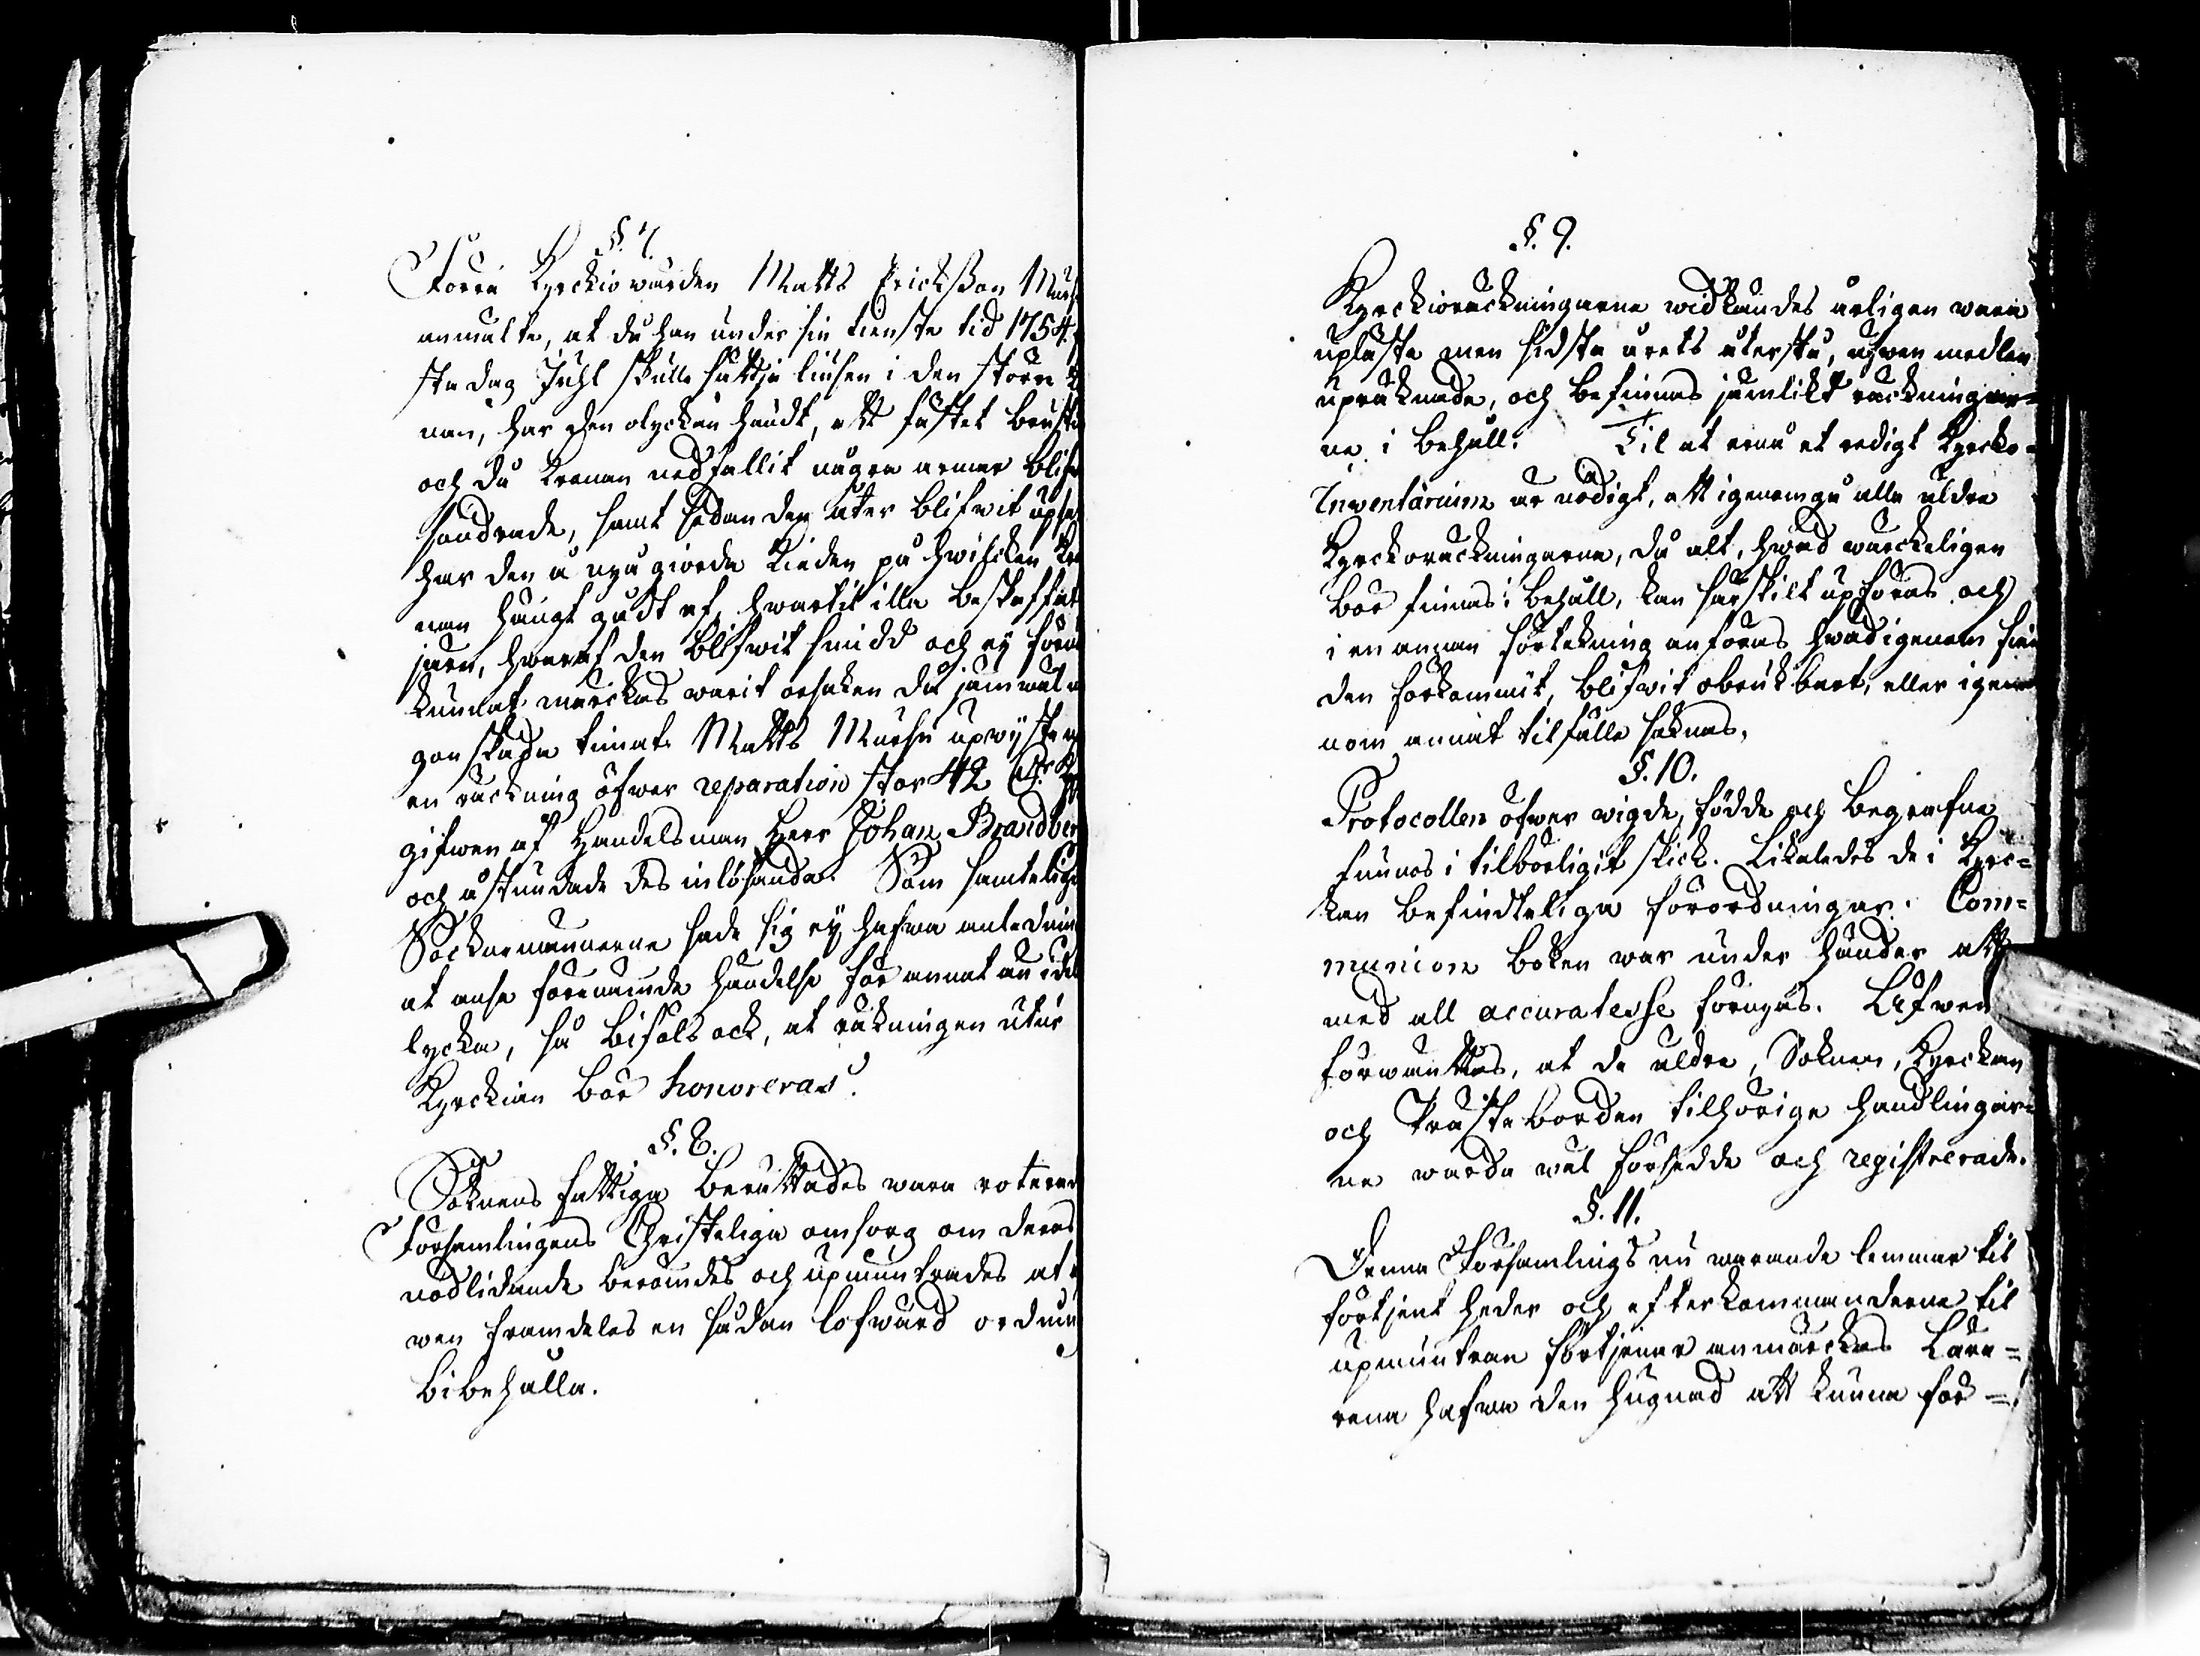 §. 7.
Förra Kyrckio wärden Matts Erickßon Mårs
anmälte, at då han under sin tienste tid 1754.
sta dag Juhl skulle sättja liusen i den störr
nan, har den olyckan händt, att fästet brustit
och då Kronan nedfallit några armar blif
söndrade, samt sedan den åter blifwit upsa
har den å nyo giorda Kieden på hwilcken Kro
nan hängt gådt af, hwartil illa beskaffat
jern, hwaraf den blifwit smidd och ej förut
kunnat märckas warit orsaken då jämwäl n
gon skada timat. Matts Mårsu upwyste n
en räckning öfwer reparation stor 42
gifwen af Handelsman Herr Johan Brandber
och åstundade des inlösande. Som samtelige
Sockne männerne sade sig ej hafwa anledning
at anse förenämde händelse för annat än idel
lycka, så bifols ock, at räkningen utur
Kyrckian bör honoreras.
§. 8.
Soknens fattiga berättades wara roterade
Församlingens Christeliga omsorg om deras
nödlidande berömdes och upmuntrades at
wen framdeles en sådan lofwärd ordnin
bibehålla.
§. 9.
Kyrckioräckningarna widkändes årligen wara
upläste men sidsta årets återstå, äfwen medlen
upräknade, och befinnas jämlikt räckningar=
na i behåll. Til at ernå et redigt Kyrcko=
Inventarium är nödigt, att igenomgå alla äldre
Kyrckoräckningarna, då alt, hwad wärckeligen
bör finnas i behåll, kan särskilt upföras och
i en annan förtekning anföras hwad igenom
den förkommit, blifwit obrukbart, eller igen
nom annat tilfälle saknas.
§. 10.
Protocollen öfwer wigde, födde och begrafne
funnos i tilbörligit skick. Likaledes de i Kyrc=
kan befindteliga förordningar. Com=
munion boken war under händer att
med all accuratesse förnyas. Äfwen
förwänttes, at de äldre, Soknen, Kyrckan
och Präste borden tilhörige handlingar=
ne warda wäl försedde och registrerade.
§. 11.
Denna Församlings nu warande lemmar til
förtjent heder och efterkommanderna til
upmuntran förtjenar anmärckas Lära=
rena hafwa den hugnad att kunna för=